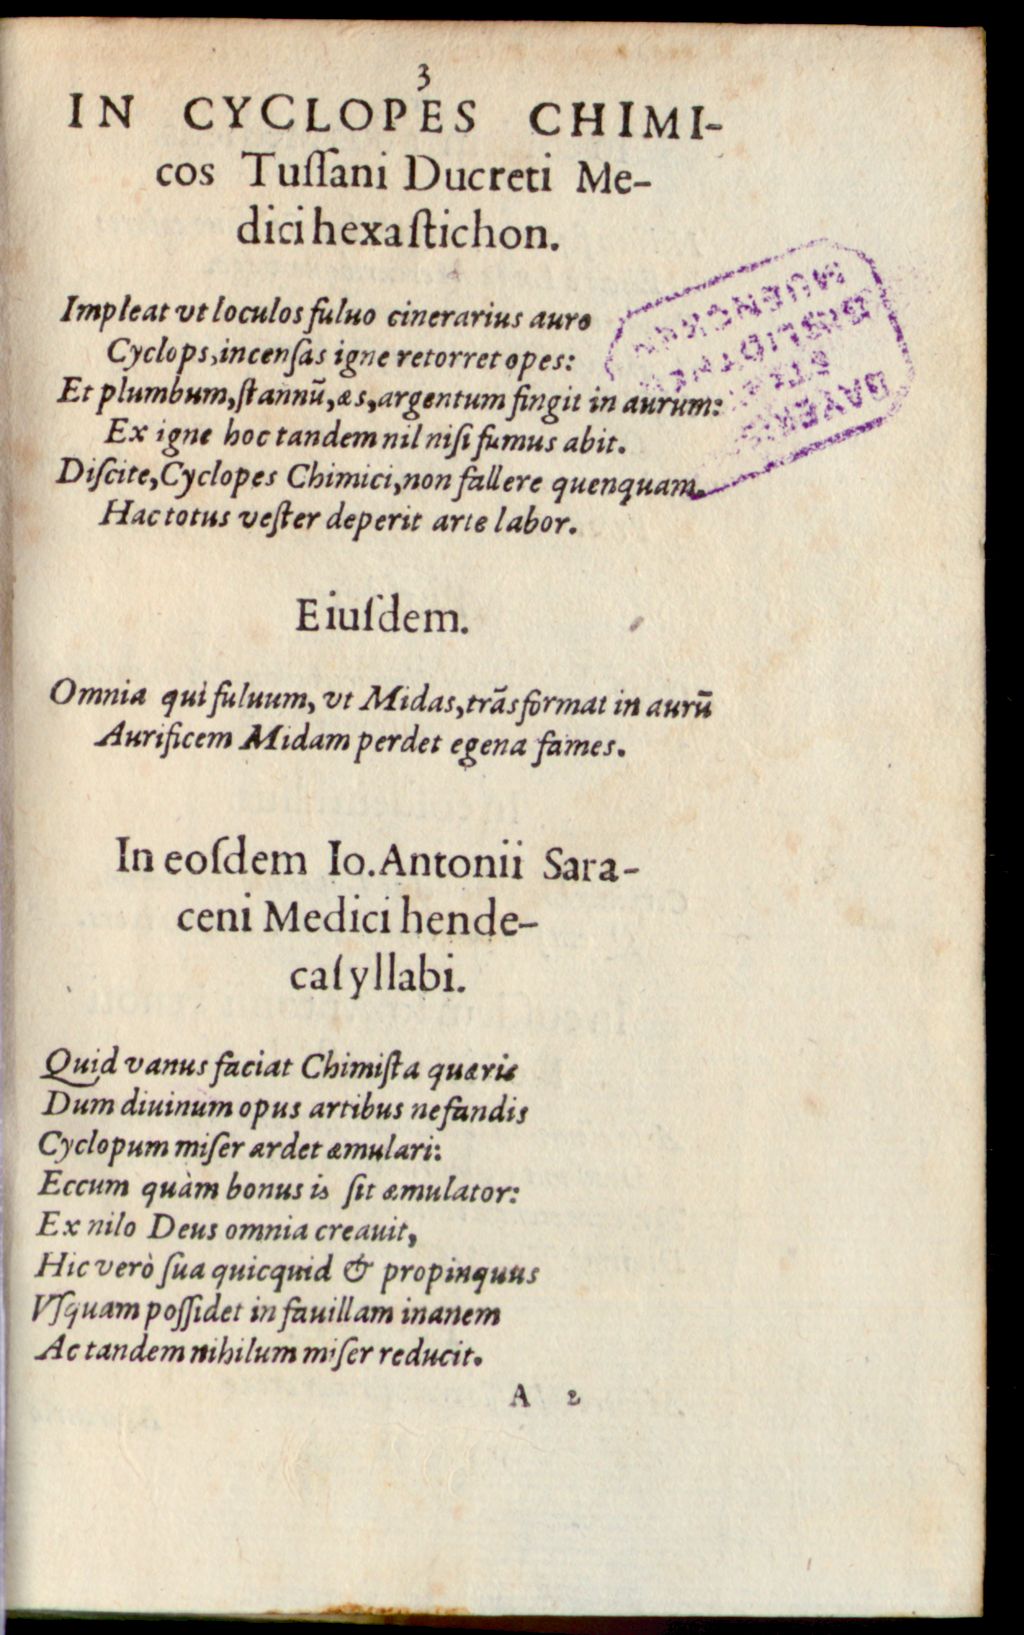 3
IN CYCLOPES CHIMI-
cos Tuſſani Ducreti Me-
dici hexaſtichon.
Impleat vt loculos fuluo cinerarius auro
Cyclops, incenſas igne retorret opes:
Et plumbum, ſtannū, æs, argentum fingit in aurum:
Ex igne hoc tandem nil niſi fumus abit.
Diſcite, Cyclopes Chimici, non fallere quenquam.
Hac totus veſter deperit arte labor.
Eiuſdem.
Omnia qui fuluum, vt Midas, trāsformat in aurū
Aurificem Midam perdet egena fames.
In eoſdem Io. Antonii Sara-
ceni Medici hende-
caſyllabi.
Quid vanus faciat Chimiſta quæris
Dum diuinum opus artibus nefandis
Cyclopum miſer ardet æmulari:
Eccum quàm bonus is ſit æmulator:
Ex nilo Deus omnia creauit,
Hic verò ſua quicquid & propinquus
Vſquam poſſidet in fauillam inanem
Ac tandem nihilum miſer reducit.
A 2